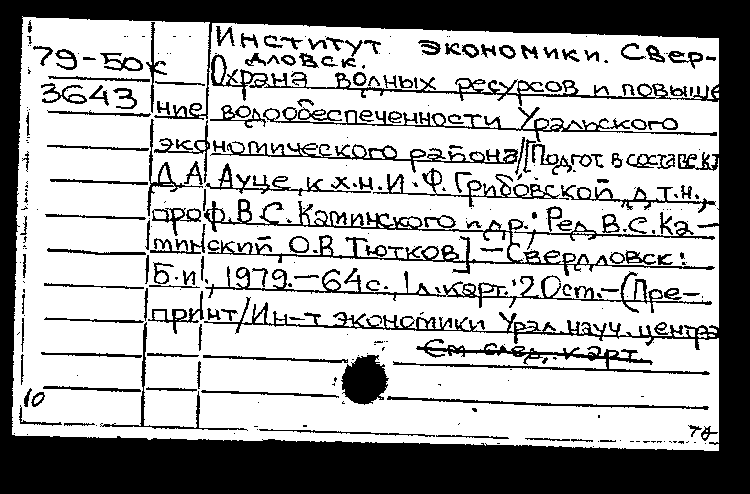 Институт экономики. Свер-
79-50к дловск.
Охрана водных ресурсов и повыше
3643 ние водообеспеченности Уральского
экономического района/[Подгот. в составе к.т
Д.А. Ауце, к.х.н. И.Ф. Грибовской, д.т.н.,
проф. В.С. Каминского и др.; Ред. В.С. Ка-
минский, О.В. Тютков]. - Свердловск:
Б.и., 1979. - 64 с., 1 л. карт.; 20 см. - (Пре-
принт/Ин-т экономики Урал. науч. центра
См. след. карт.
10